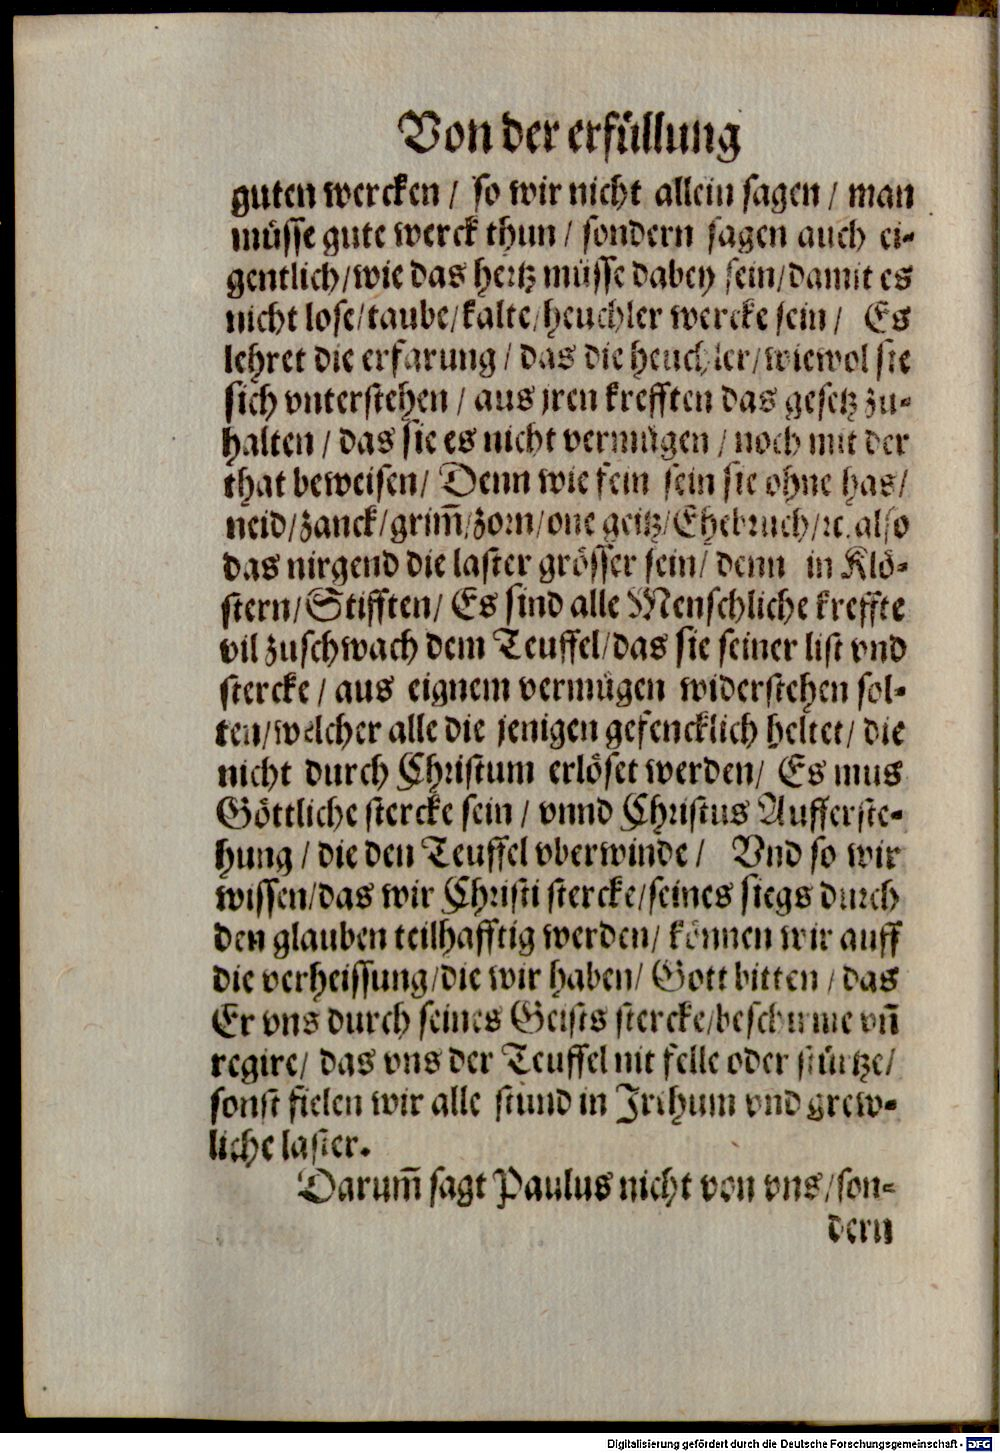 Von der erfüllung
guten wercken / so wir nicht allein sagen / man
müsse gute werck thun / sondern sagen auch ei-
gentlich/wie das hertz müsse dabey sein/damit es
nicht lose/taube/kalte/heuchler wercke sein / Es
lehret die erfarung / das die heuchler/wiewol sie
sich vnterstehen / aus jren krefften das gesetz zu-
halten / das sie es nicht vermügen / noch mit der
that beweisen/ Denn wie fein sein sie ohne has/
neid/zanck/grim̃/zorn/one geitz/Ehebruch/ꝛc. also
das nirgend die laster grösser sein/ denn in Klö-
stern/Stifften/ Es sind alle Menschliche kreffte
vil zuschwach dem Teuffel/das sie seiner list vnd
stercke / aus eignem vermügen widerstehen sol-
ten/welcher alle die jenigen gefencklich heltet/ die
nicht durch Christum erlöset werden/ Es mus
Göttliche stercke sein / vnnd Christus Aufferste-
hung / die den Teuffel vberwinde / Vnd so wir
wissen/das wir Christi stercke/seines siegs durch
den glauben teilhafftig werden/ können wir auff
die verheissung/die wir haben/ Gott bitten / das
Er vns durch seines Geists stercke/beschirme vñ
regire/ das vns der Teuffel nit felle oder stürtze/
sonst fielen wir alle stund in Irthum vnd grew-
liche laster.
Darum̃ sagt Paulus nicht von vns/son-
dern
Digitalisierung gefördert durch die Deutsche Forschungsgemeinschaft - DFG